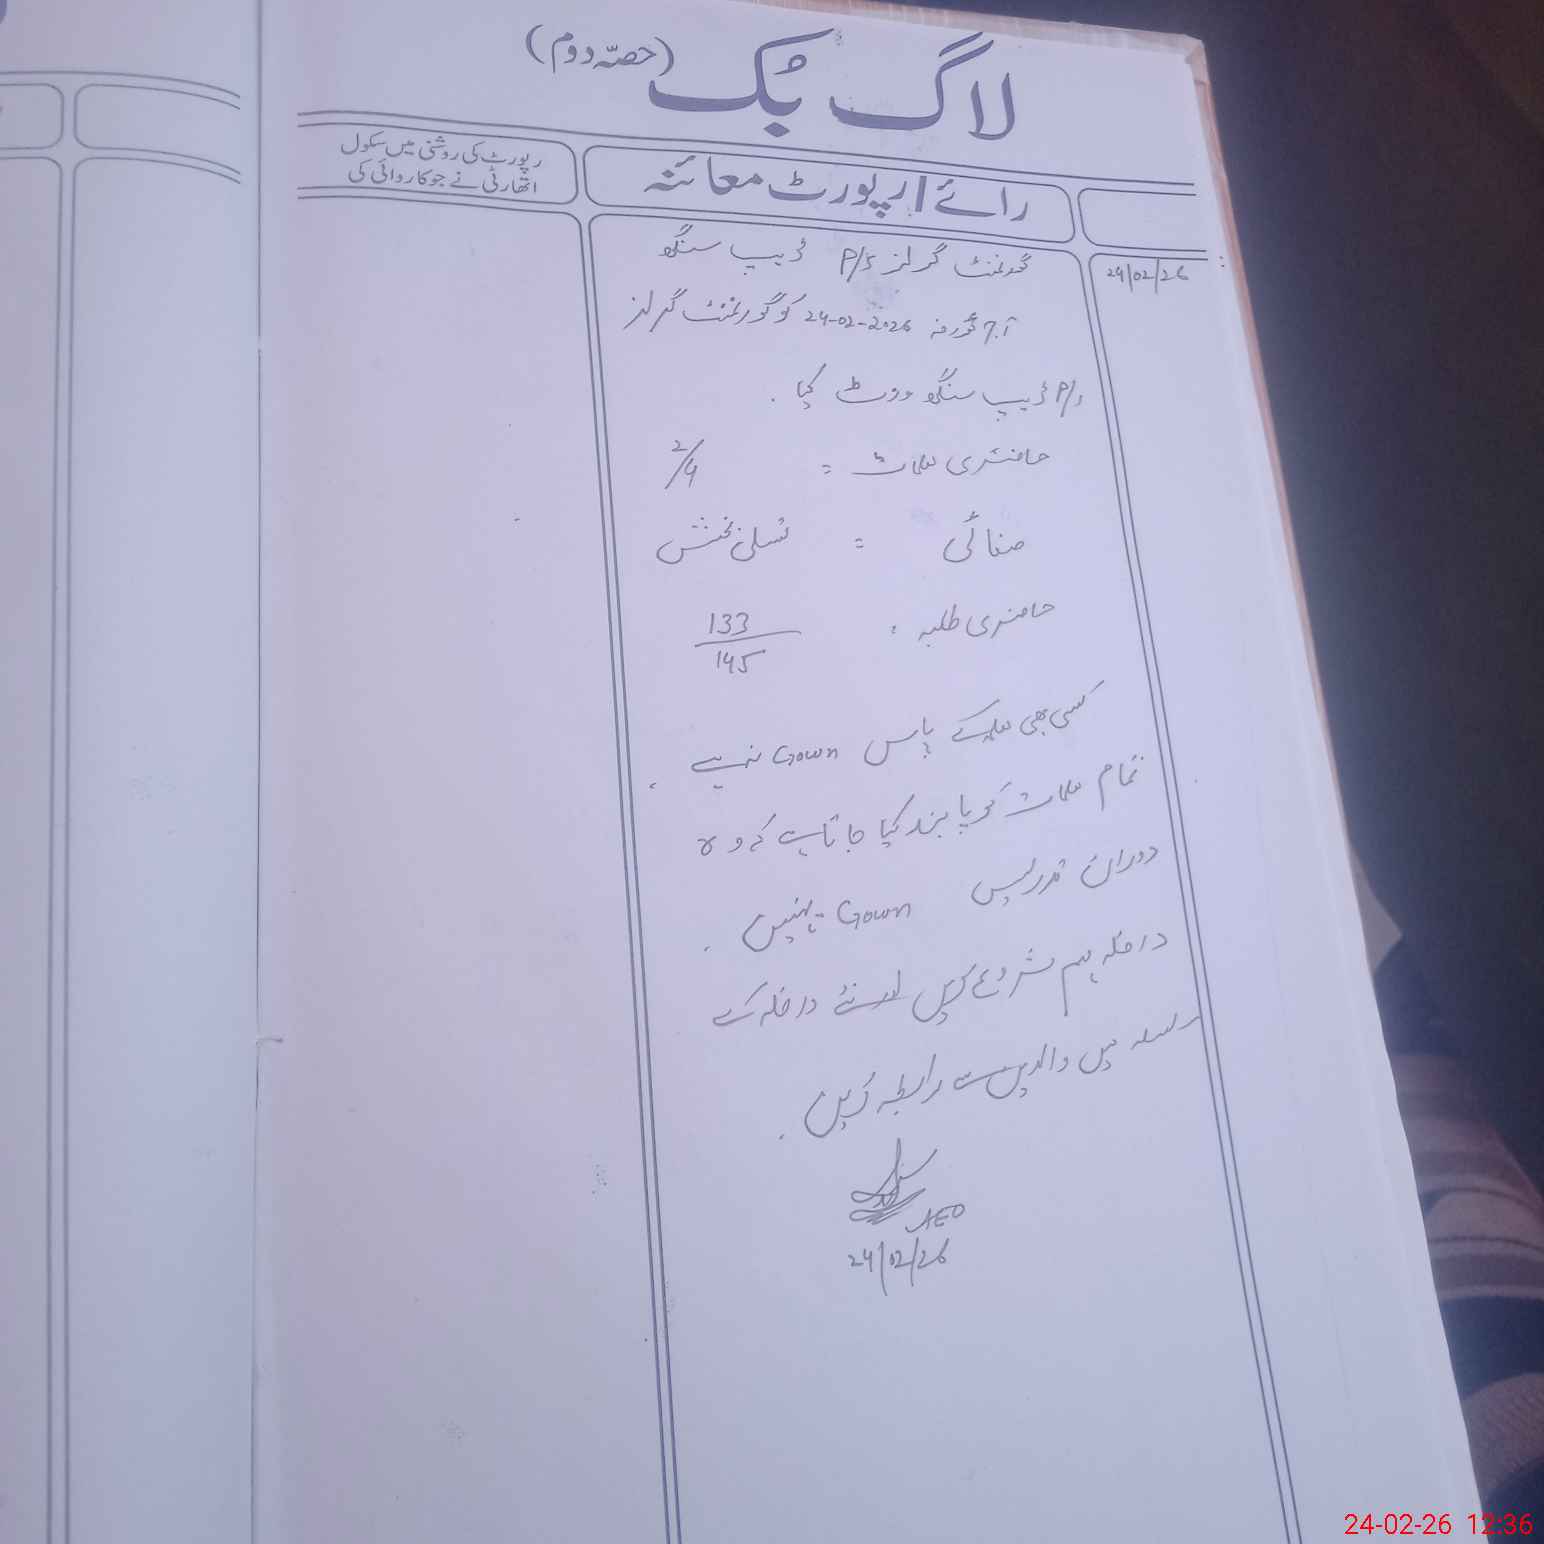 لاگ بُک (حصہ دوم)
رائے / رپورٹ معائنہ
رپورٹ کی روشنی میں سکول
اتھارٹی نے جو کاروائی کی
24/02/26
گورنمنٹ گرلز P/S ڈیپ سنگھ
آج مورخہ 24-02-2026 کو گورنمنٹ گرلز
P/S ڈیپ سنگھ وزٹ کیا .
حاضری معلمات = 2/4
صفائی = تسلی بخش
حاضری طلبہ : 133/145
کسی بھی معلمہ کے پاس Gown نہ ہے .
تمام معلمات کو پابند کیا جاتا ہے کہ وہ
دوران تدریس Gown پہنیں .
داخلہ مہم شروع کریں اور نئے داخلہ کے
سلسلہ میں والدین سے رابطہ کریں .
AEO
24/02/26
24-02-26 12:36